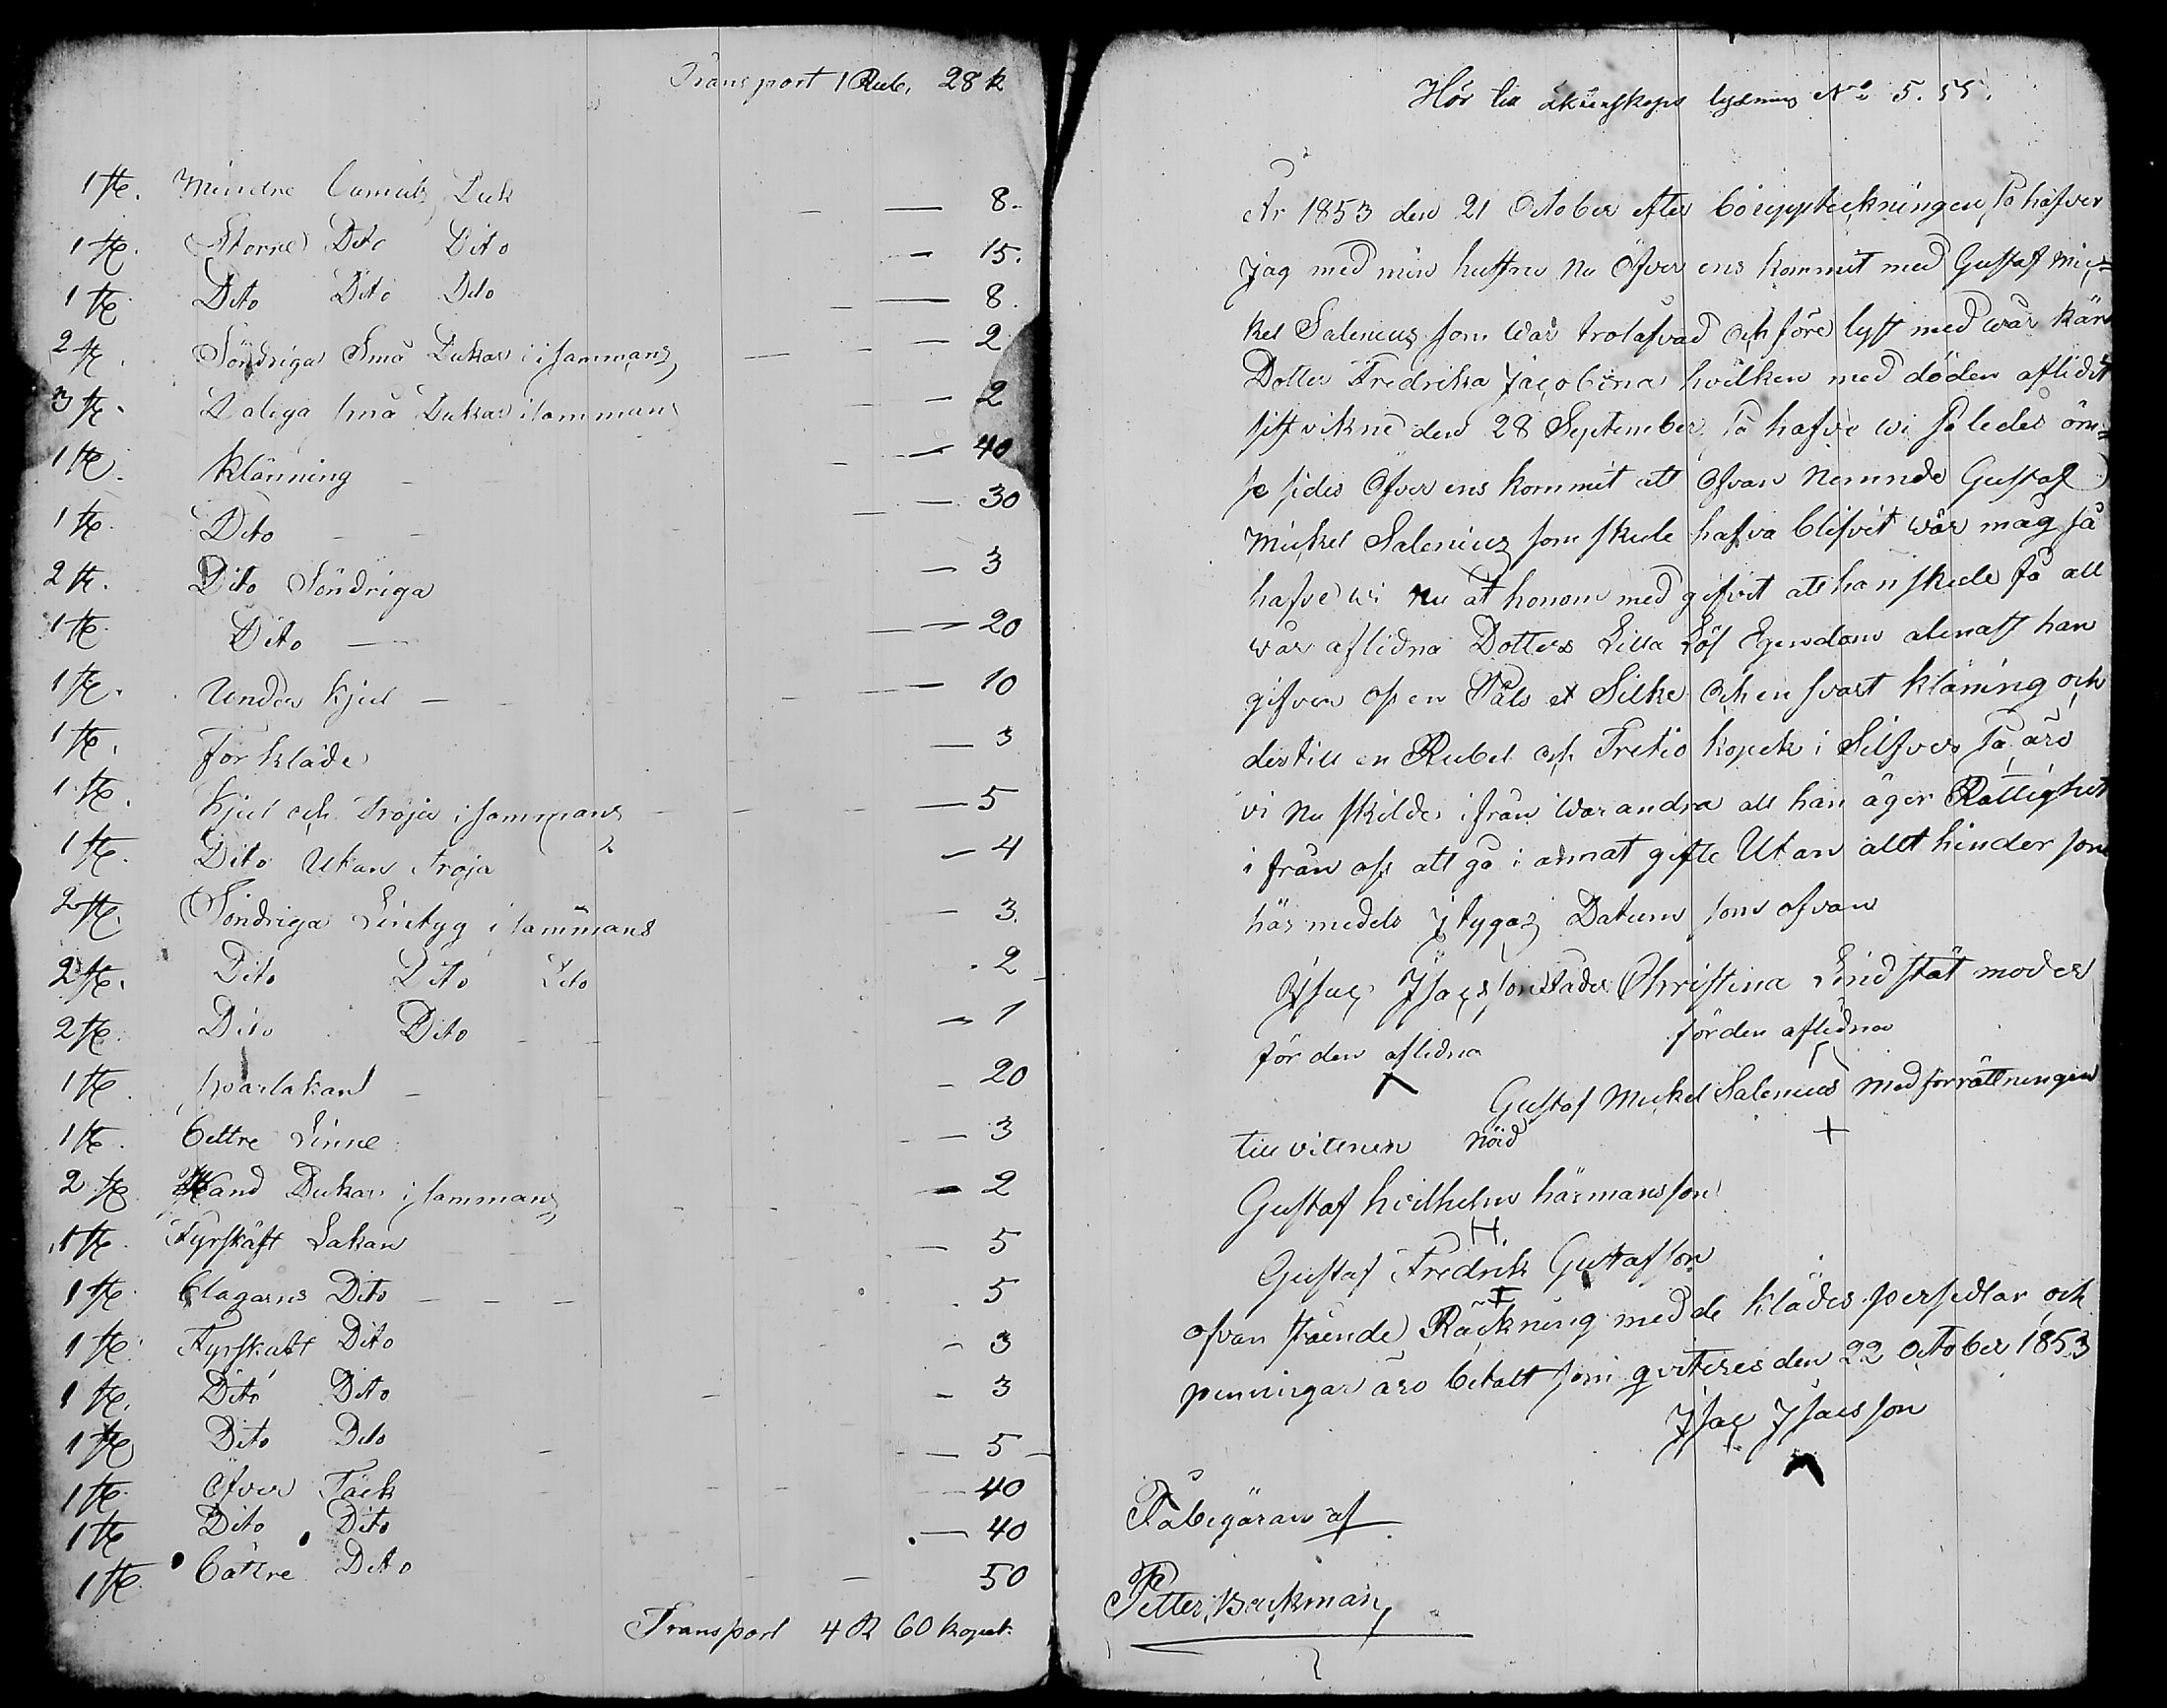 Transport 1 Rub, 28 k
1 st. Mindre Bomuls Duk — 8.
1 st. Störrre Dito Dito — 15.
1 st. Dito Dito Dito — 8.
2 st. Söndriga Små Dukar i sammans — 2
3 st. Daliga små Dukar i sammans — 2
1 st. Klänning — 40
1 st. Dito — 30
2 st. Dito Söndriga — 3
1 st. Dito — 20
1 st. Under Kjol — 10
1 st. förkläde — 3
1 st. Kjol och Tröja i sammans — 5
1 st. Dito Utan Tröja — 4
2 st. Söndriga Lintyg i sammans — 3.
2 st. Dito Dito Dito - 2
2 st. Dito Dito — 1
1 st. sparlakan — 20
1 st. bettre Linne — 3
2 st Hand Dukar i sammans — 2
1 st. Fyrskäft Lakan — 5
1 st. blagarns Dito — 5
1 st. Fyrskaft Dito — 3
1 st. Dito Dito — 3
1 st Dito Dito — 5
1 st. Öfver Täck — 40
1 st Dito Dito — 40
1 st. bättre Dito 50
Transport 4 R 60 kopek
Hör till lysning No 5. 55.
År 1853 den 21 October efter böuppteckningen, så hafver
jag med min hustru nu öfver ens kommit med Gustaf Mic=
kel Salenius som war trolofvad och före lyst med wår kära
Dotter Fredrika Jacobina hvilken med döden aflidit
den 28 September. så hafve wi således öm=
se sides öfver ens kommit att ofvan nemnde Gustaf
Mickel Salenius som skule hafva blifvit wår måg så
hafve wi nu åt honom med gifvit att han skule få all
wår aflidna Dotters Lilla Lös Egendom alenast han
gifver oss en Päls et Silke och en svart kläning och
dertill en Rubel och Tretio kopek i Silfver, så äro
vi nu skilde ifrån warandra att han äger Rättighet
i från oss att gå i annat gifte Utan allt hinder som
här medels Jtygas Datum som ofvan
Jsac Jsacsson fader Christina Lindstät moder
för den aflidna för den aflidna
Gustaf Mickel Salenius med förrättningen
till vitnen nöid +
Gustaf hvilhelm härmansson
H.
Gustaf Fredrik Gustafson
ofvan stående Räckning med de klädes persedlar och
penningar äro betalt som qviteres den 22 October 1853
Jsac Jsacsson
På begäran af
Petter Backman,